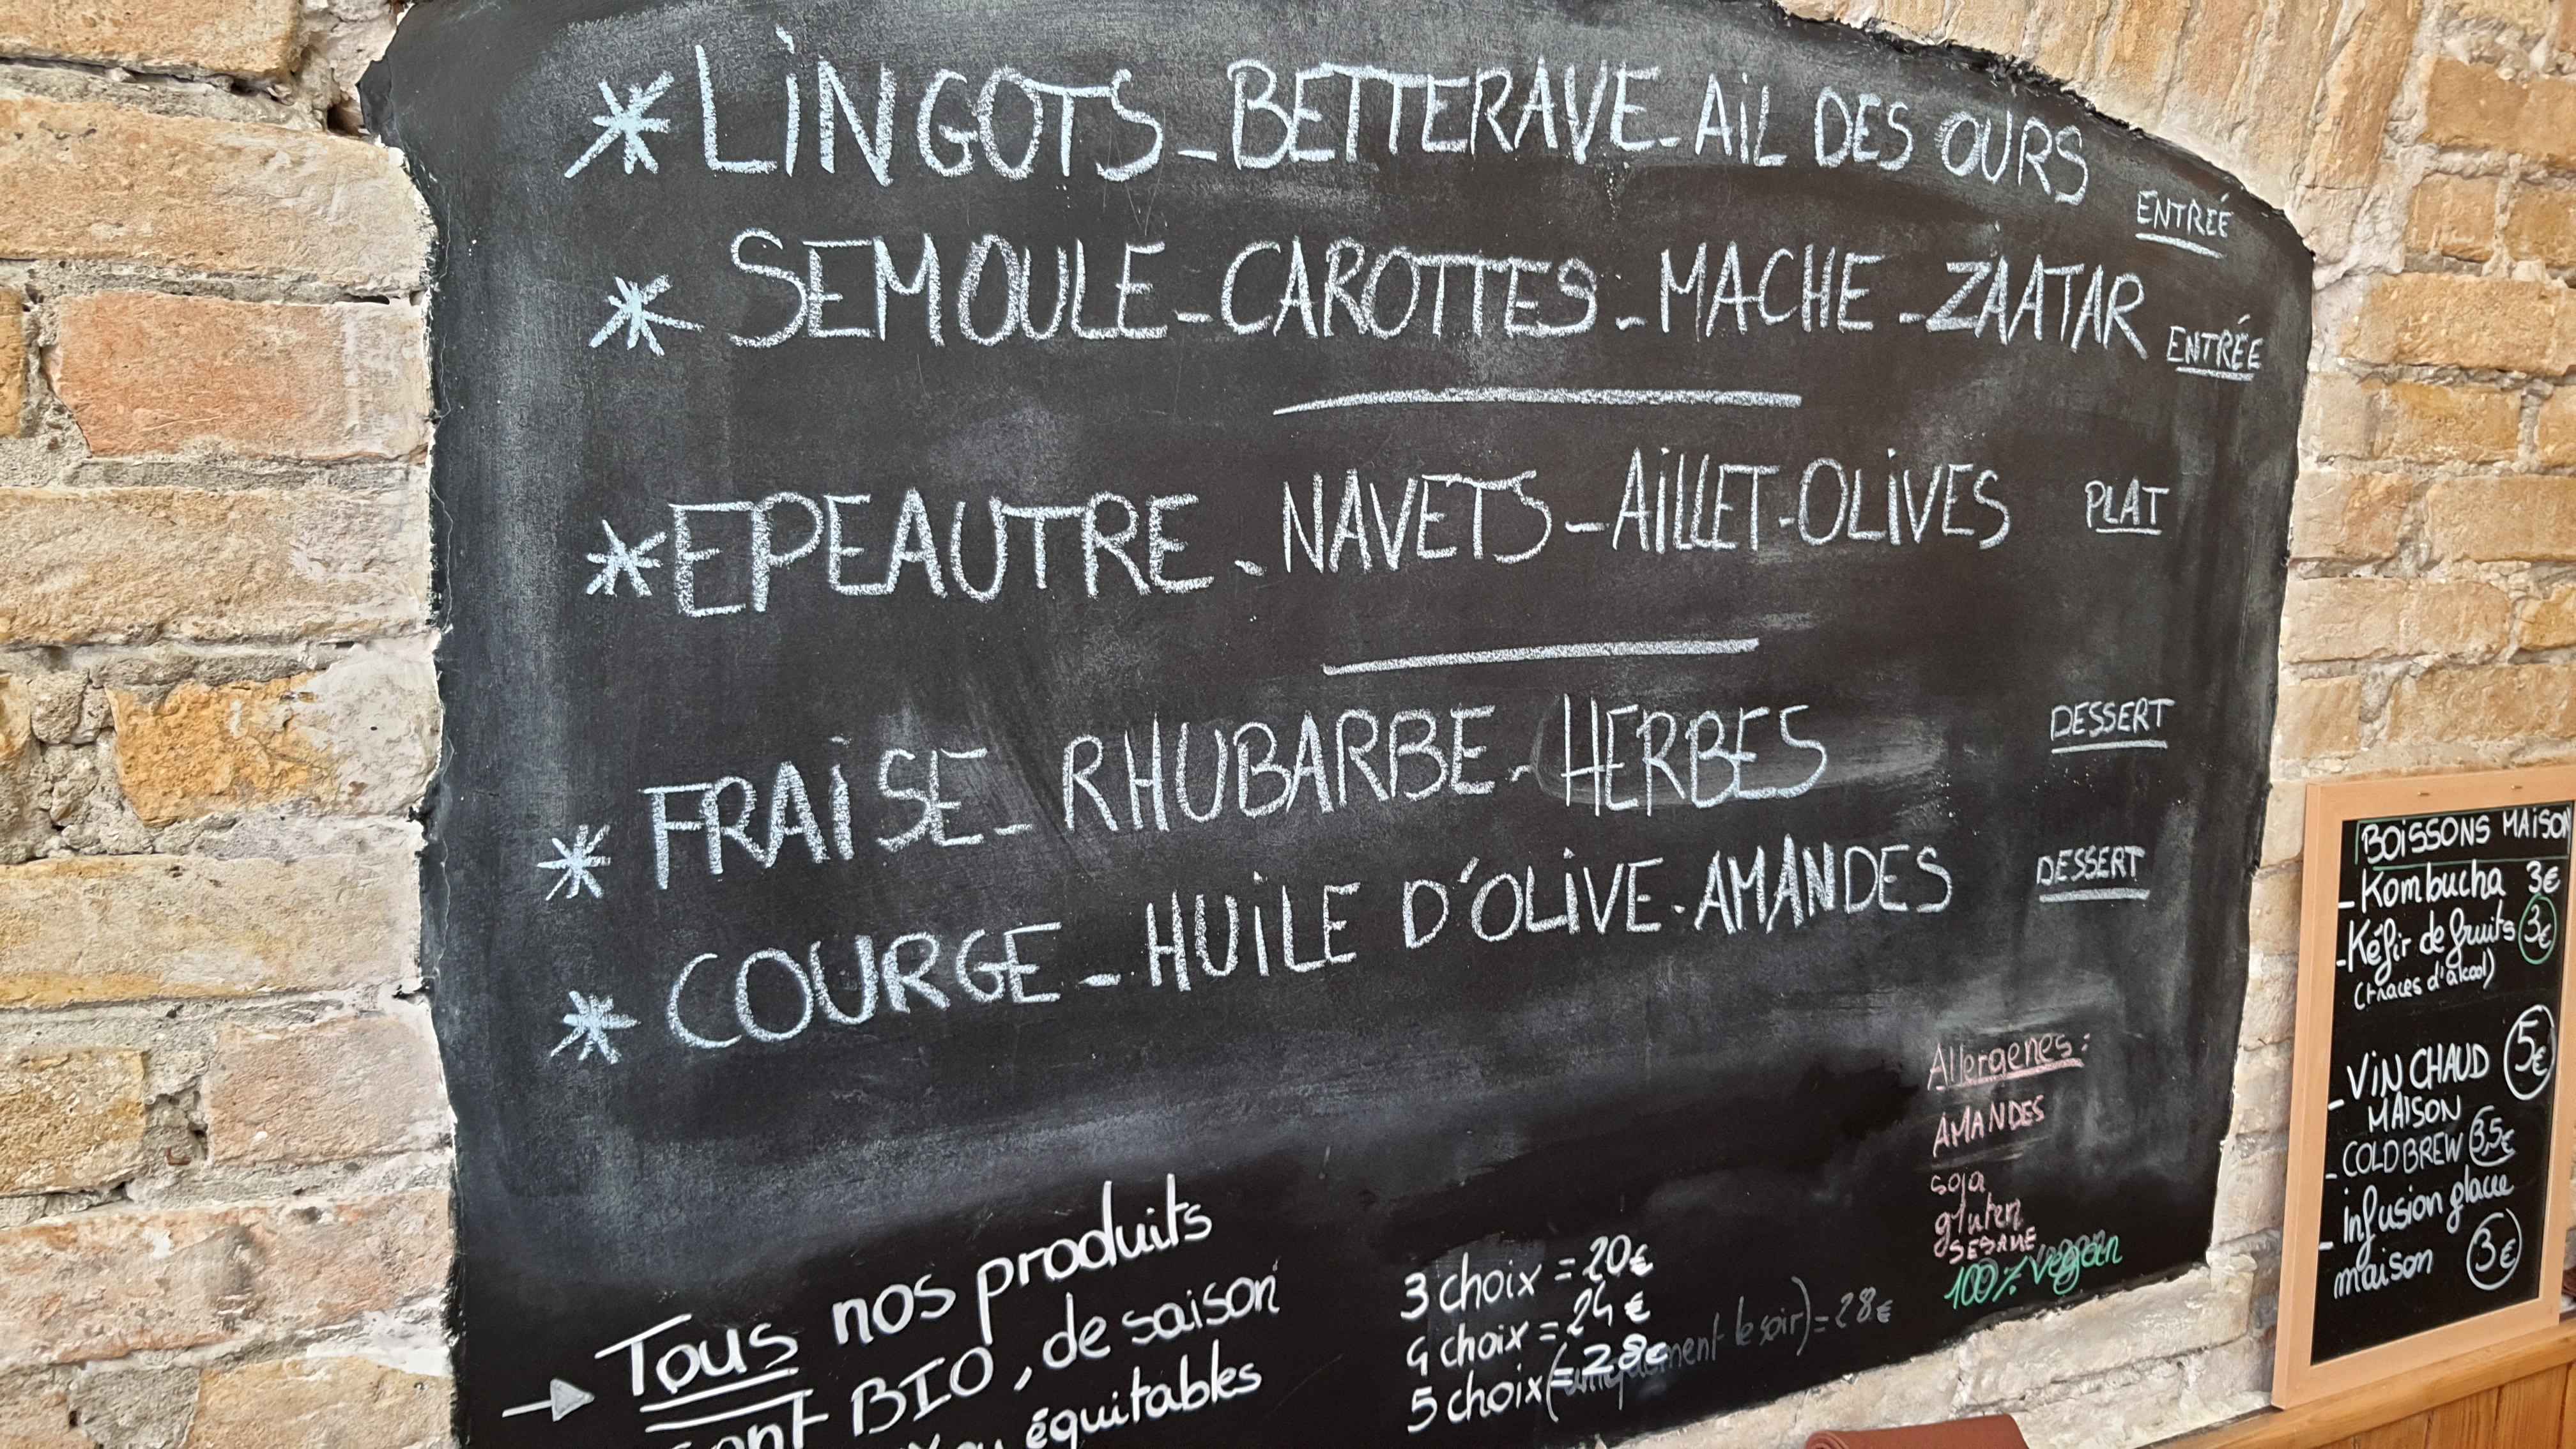 * LiNGOTS - BETTERAVE - AiL DES OURS ENTREÉ
* SEMOULE - CAROTTES - MACHE - ZAATAR ENTRÉE
* EPEAUTRE - NAVETS - AiLLET - OLiVES PLAT
* FRAiSE - RHUBARBE - HERBES DESSERT
* COURGE - HUiLE D'OLiVE - AMANDES DESSERT
Allergenes :
AMANDES
soja
gluten
SESAME
100% vegan
→ Tous nos produits
sont BIO, de saison
ou équitables
3 choix = 20€
4 choix = 24€
5 choix = 28€
ment le soir) = 28€
BOiSSONS MAiSON
- Kombucha 3€
- Kéfir de fruits 3€
(traces d'alcool)
- ViN CHAUD 5€
MAISON
- COLD BREW 3,5€
- infusion glacée
maison 3€